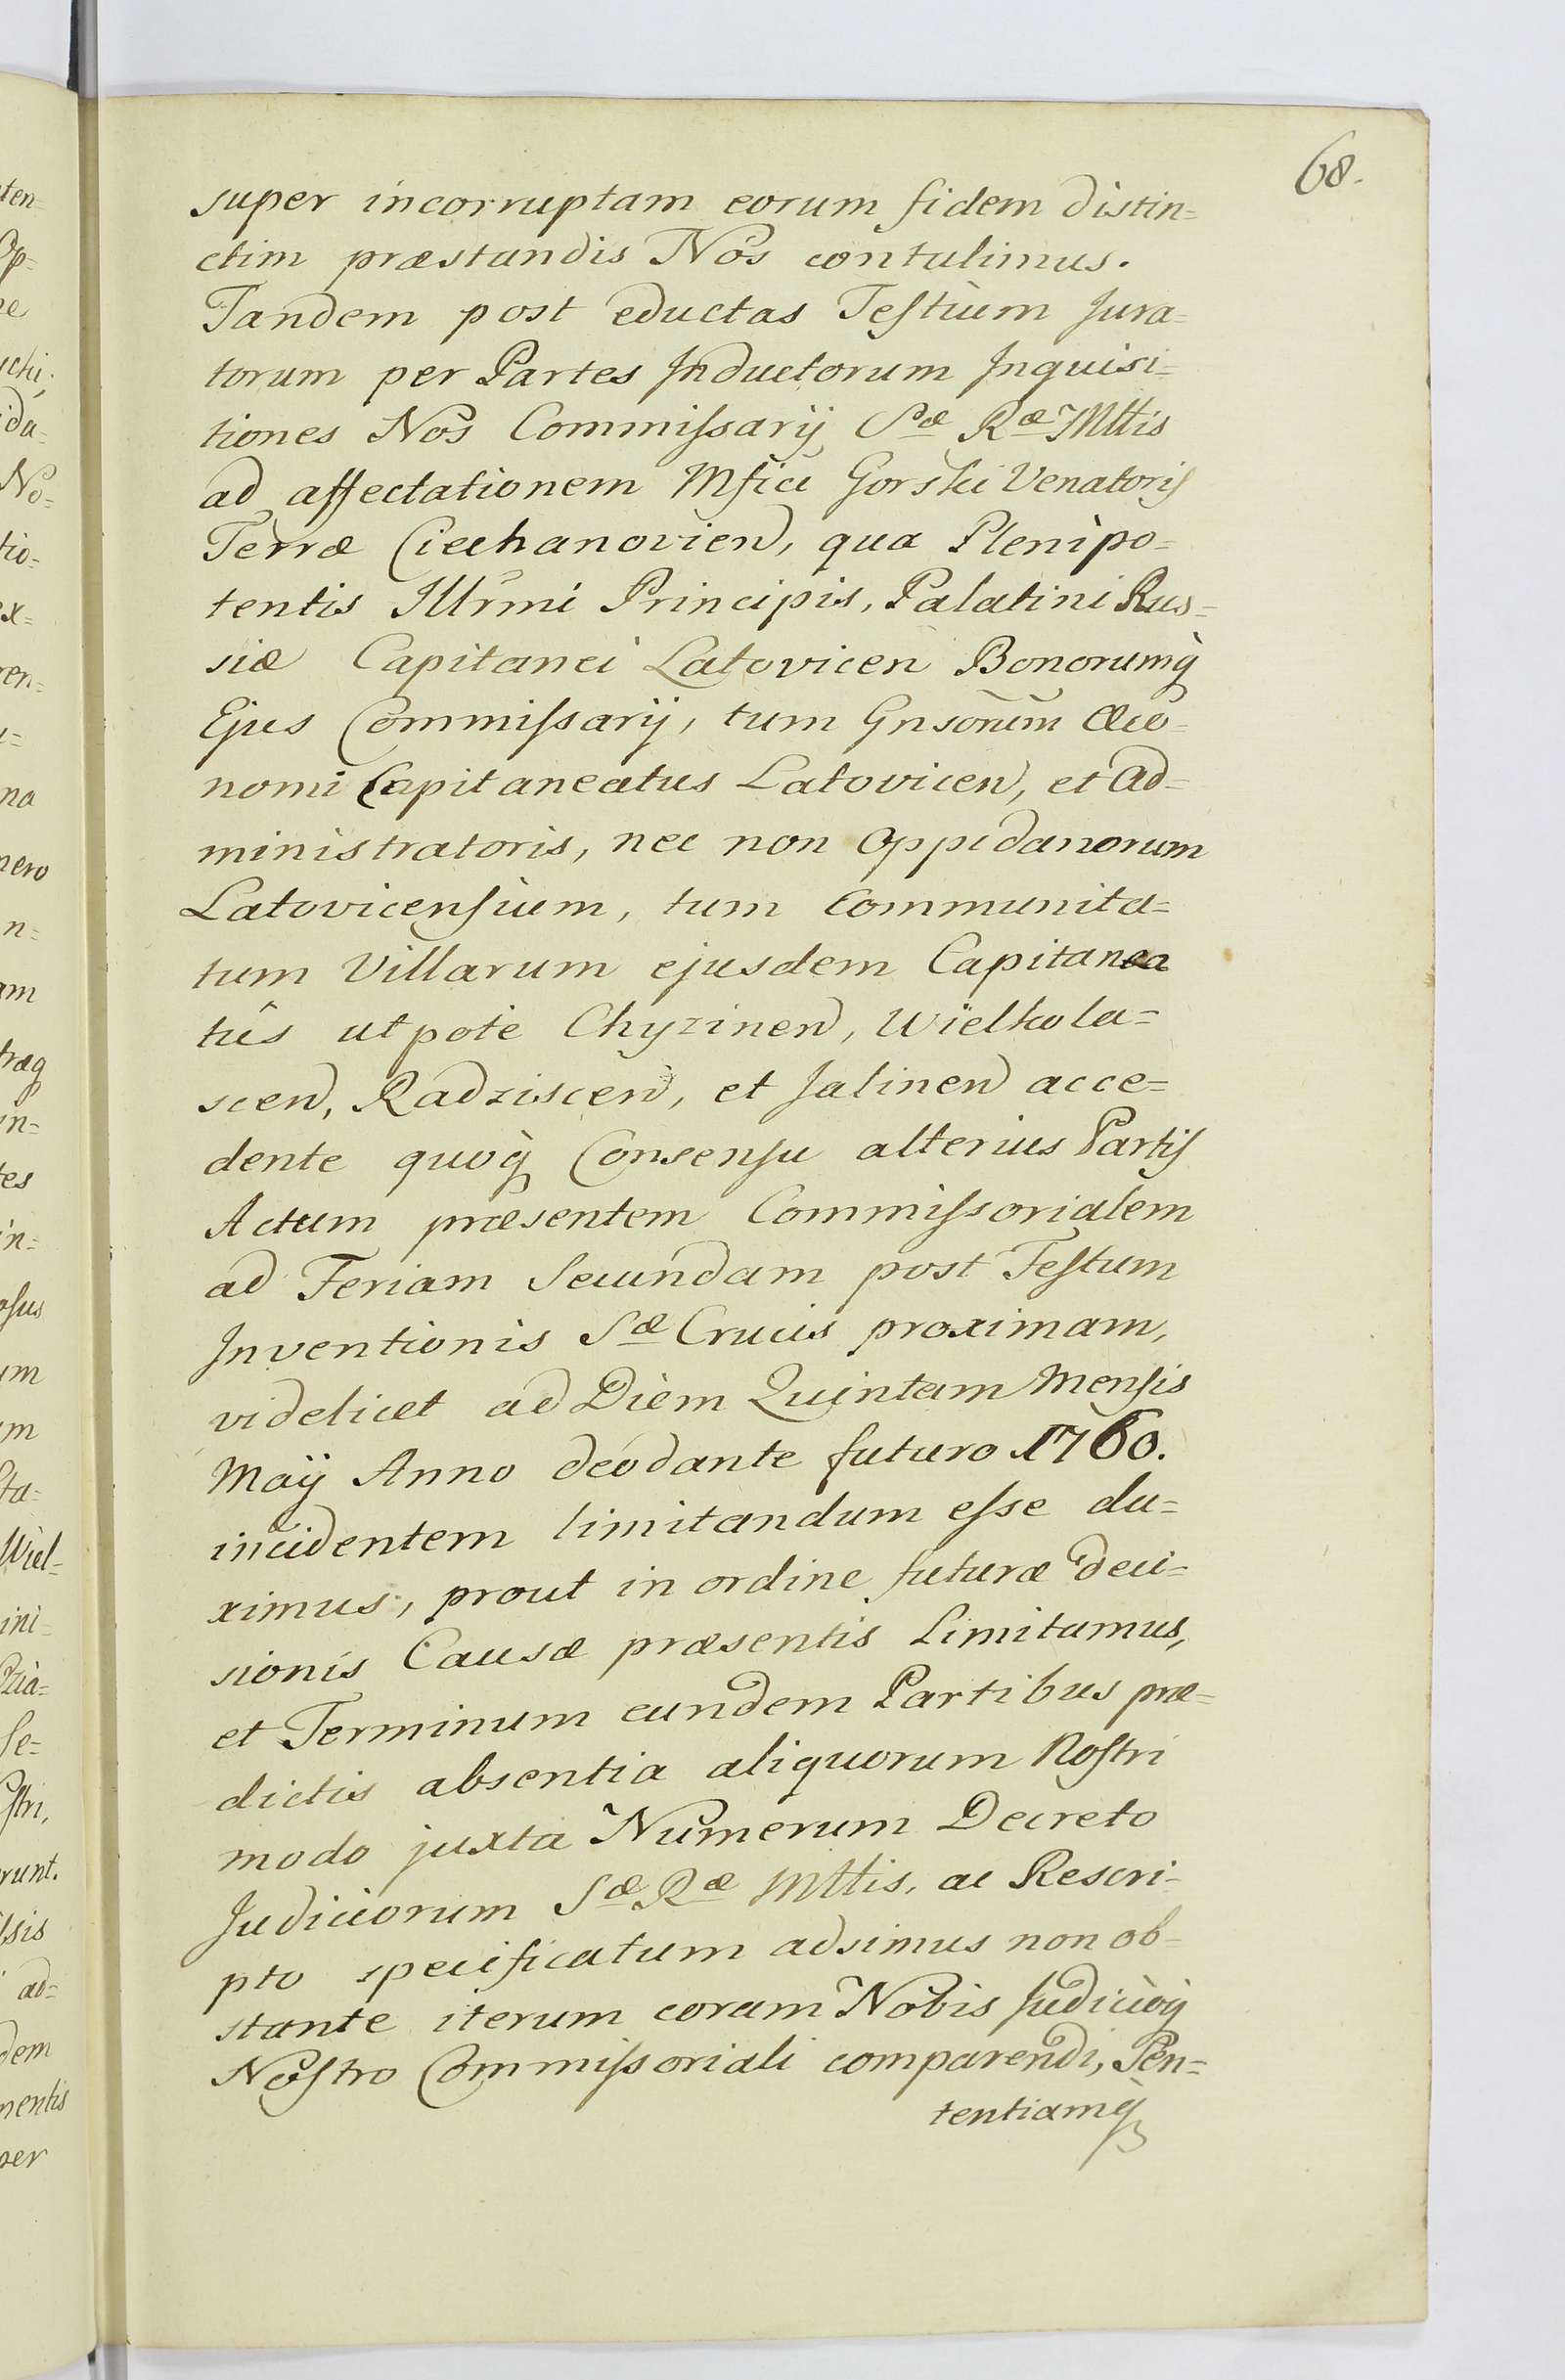 68.
super incorruptam eorum fidem distin=
ctim præstandis Nos contulimus.
Tandem post eductas Testium Jura=
torum per Partes Inductorum Inquisi=
tiones Nos Commissarij Sæ Ræ Mttis
ad affectationem Mfici Gorski Venatoris
Terræ Ciechanovien, qua Plenipo=
tentis Illrmi Principis, Palatini Rus=
siæ Capitanei Latovicen Bonorumq
Ejus Commissarij, tum Gnsorum Œco=
nomi Capitaneatus Latovicen, et Ad=
ministratoris, nec non Oppidanorum
Latovicensium, tum Communita=
tum Villarum ejusdem Capitanea
tûs utpote Chyzinen, Wielkola=
scen, Radziscen, et Jalinen acce=
dente quoq Consensu alterius Partis
Actum præsentem Commissorialem
ad Feriam Secundam post Festum
Inventionis Sæ Crucis proximam,
videlicet ad Diem Quintam Mensis
Maij Anno deodante futuro 1760.
incidentem limitandum esse du=
ximus, prout in ordine futuræ deci=
sionis Causæ præsentis Limitamus,
et Terminum eundem Partibus præ=
dictis absentia aliquorum Nostri
modo juxta Numerum Decreto
Judiciorum Sæ Ræ Mttis, ac Rescri=
pto specificatum adsimus non ob=
stante iterum coram Nobis Judicioq
Nostro Commissoriali comparendi, Sen=
tentiamq
ten=
Op=
ne
schi.
ida=
No=
tio=
ex=
ren=
na
mero
n=
am
træq
in=
tes
in=
osus
um
um
sta=
Wiel=
ini=
Dzia=
se=
stri,
runt.
lsis
ad=
dem
mentis
per